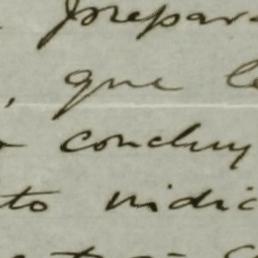 prepar
, que l
concluy
to indic